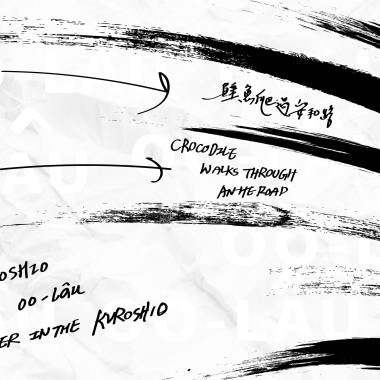 鱷魚爬過安和路
CROCODILE
WALKS THROUGH
AN HE ROAD
OSHIO
OO-LÂU
ER IN THE KUROSHIO
OO-LAU